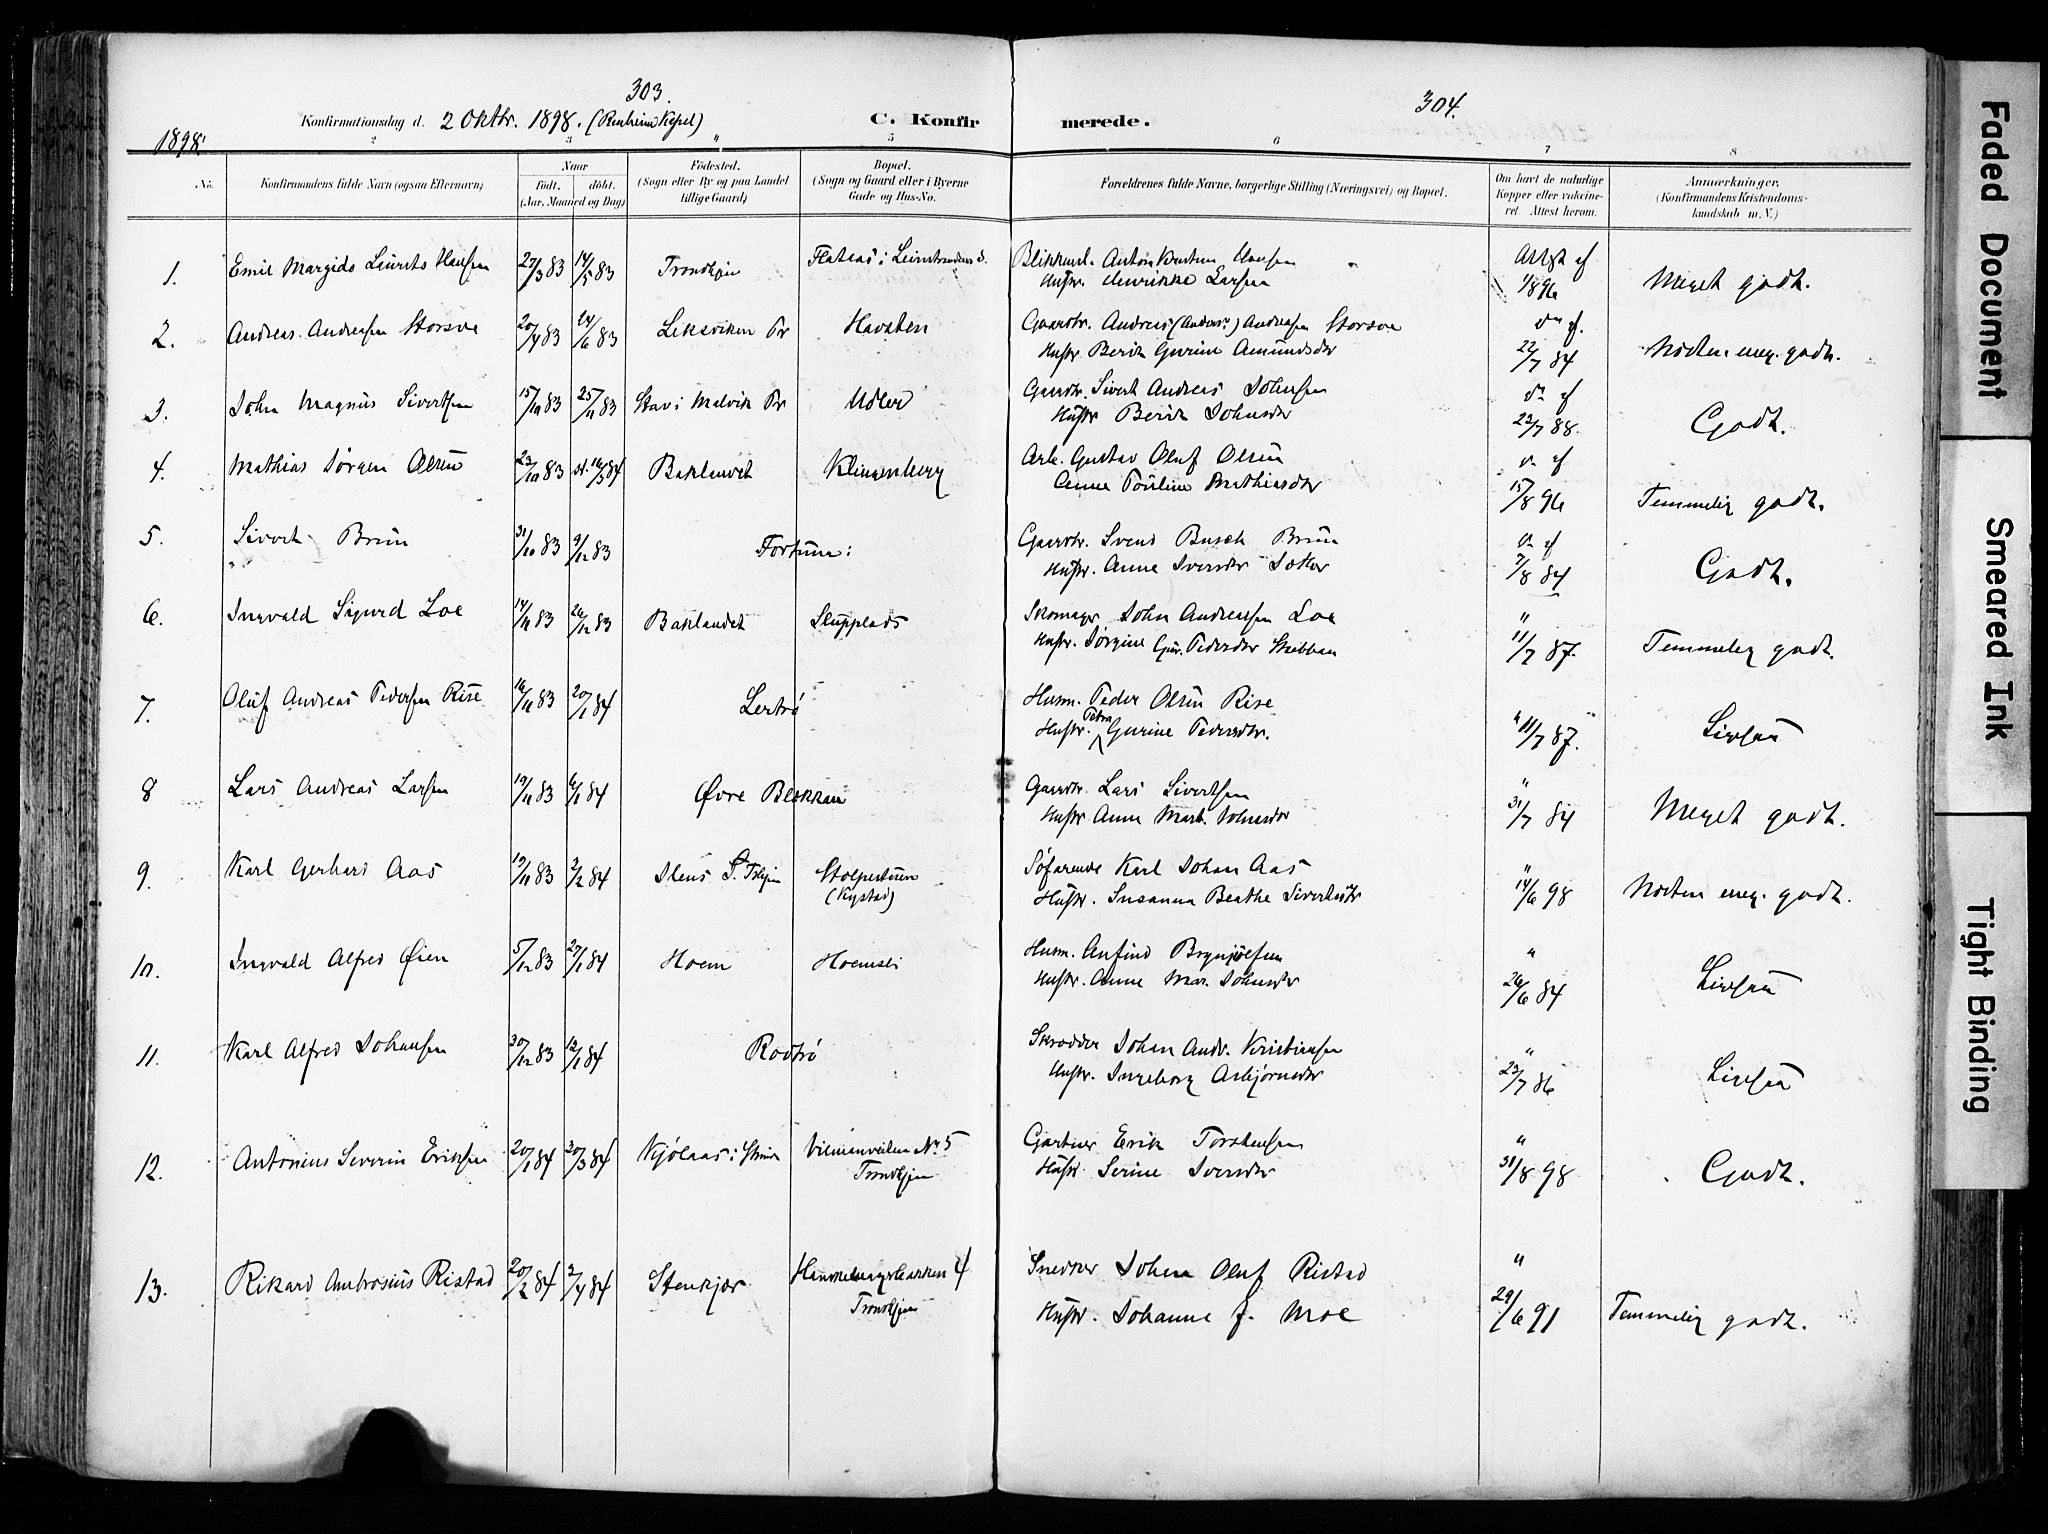 303.
304.
Konfirmationsdag d. 2 Oktbr. 1898. (Renheim Kapel)
C. Konfirmerede.
1898.
No.
Konfirmandens fulde Navn (ogsaa Efternavn)
Naar
födt. döbt.
(Aar, Maaned og Dag)
Födested.
(Sogn eller By og paa Landet
tillige Gaard)
Bopæl.
(Sogn og Gaard eller i Byerne
Gade og Hus-No.
Forældrenes fulde Navne, borgerlige Stilling (Næringsvei) og Bopæl.
Om havt de naturlige
Kopper eller vakcine-
ret Attest herom.
Anmærkninger.
(Konfirmandens Kristendoms-
kundskab m. V.)
1. Emil Margido Hansen 27/3 83 14/5 83 Trondhjem
Anton Hansen
Hustr. Henrikke Larsen
Attest af
1/8 96
Meget godt.
2. Andreas Andreasen Storsve 20/4 83 24/6 83 Leksviken Pr Havsten
Gaardbr. Andreas (Anders) Andreasen Storsve
Hustr. Berit Gurine Amundsdtr
22/7 84
Næsten meg. godt.
3. John Magnus Sivertsen 15/10 83 25/11 83 Stav i Malvik Pr Udler
Gaardbr. Sivert Andreas Johnsen
Hustr Berit Johnsdtr
23/7 88.
Godt.
4. Mathias Jørgen Olsen 23/10 83 st. 16/3 84 Baklandet Klingenberg
Arb. Gustav Oluf Olsen
Anne Pauline Mathiasdtr
15/8 96
Temmelig godt.
5. Sivert Brun 31/10 83 9/12 83 Fortuna
Gaardbr. Svend Busch Brun
Hustr. Anne Iversdtr Sæther
7/8 84
Godt.
6. Ingvald Sigurd Loe 14/11 83 26/12 83 Baklandet Slupplads
Skomager John Andreassen Loe
Hustr. Jørgine Gur. Pedersdtr Stubban
"
11/7 87.
Temmelig godt.
7. Oluf Andreas Pedersen Rise 16/11 83 20/1 84 Lertrø
Husm. Peder Olsen Rise
Hustr. Petra Gurine Pedersdtr.
" 11/7 87.
Ligesaa
8 Lars Andreas Larsen 19/11 83 6/1 84 Øvre Blakkan
Gaardbr. Lars Sivertsen
Hustr Anne Mart. Johnsdtr
"
31/7 84
Meget godt.
9. Karl Gerhard Aas 19/11 83 3/2 84 Ilens S. Tr.hjem
(Nystad)
Søfarende Karl Johan Aas
Hustr. Susanna Beathe Sivertsdtr
"
14/6 98
Næsten meg. godt.
10. Ingvald Alfred Øien 5/12 83 27/1 84 Hoem Hoemsli
Husm. Anfind Brynjolfsen
Hustr. Anne Mar. Johnsdtr
"
26/6 84
Ligesaa
11. Karl Alfred Johansen 30/12 83 13/1 84 Rodtrø
Skrædder Johan Andr. Kristiansen
Hustr. Ingeborg Asbjørnsdtr
"
23/7 86
Ligesaa
12. Antonius Severin Eriksen 20/1 84 30/3 84
Nr 5
Trondhjem
Gartner Erik Torstensen
Hustr Serine Iversdtr
"
31/8 98
Godt.
13. Rikard Ambrosius Ristad 20/2 84 2/4 84 Stenkjær Hanskemagerbakken 4
Trondhjem
Snedker Johan Oluf Ristad
Hustr. Johanne f. Moe
"
29/6 91
Temmelig godt.
Faded Document
Smeared Ink
Tight Binding